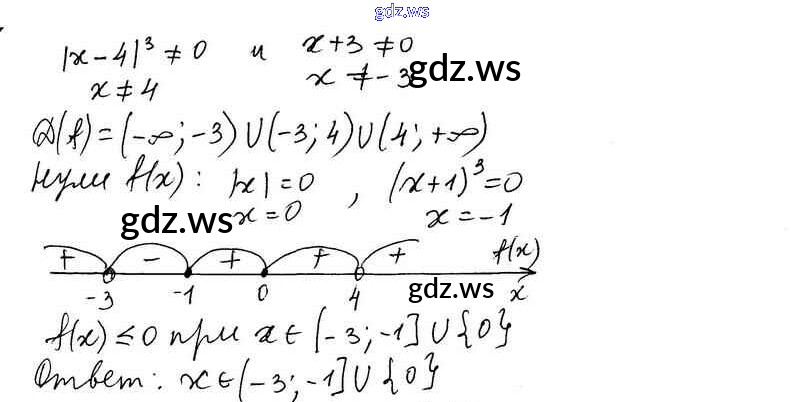 gdz.ws
|x-4|³ ≠ 0 и x+3 ≠ 0
x ≠ 4 x ≠ -3 gdz.ws
D(f) = (-∞; -3) ∪ (-3; 4) ∪ (4; +∞)
Нули f(x): |x| = 0 , (x+1)³ = 0
gdz.ws x = 0 x = -1
+ - + + + f(x)
-3 -1 0 4 gdz.ws x
f(x) ≤ 0 при x ∈ (-3; -1] ∪ {0}
Ответ: x ∈ (-3; -1] ∪ {0}